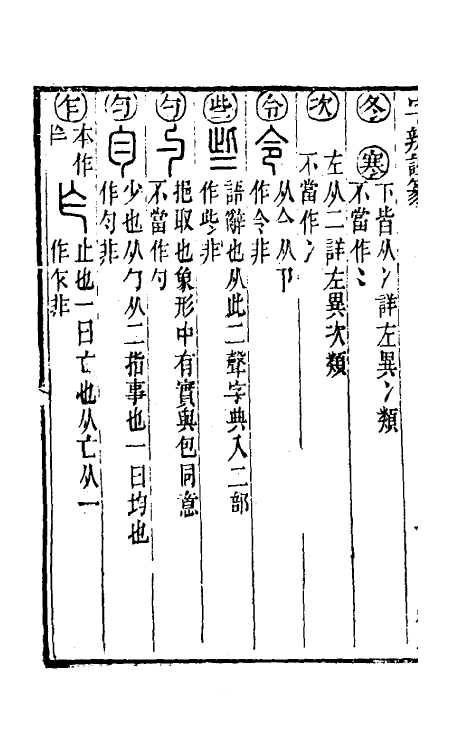 冬 寒 下皆从冫詳左異冫類
不當作⺀
次 左从二詳左異次類
不當作冫
令 从亼从卩
作令非
些 語辭也从此二聲字典入二部
作些非
勺 挹取也象形中有實與包同意
不當作勺
勻 少也从勹从二指事也一曰均也
作匀非
乍 本作
止也一曰亡也从亡从一
作乍非